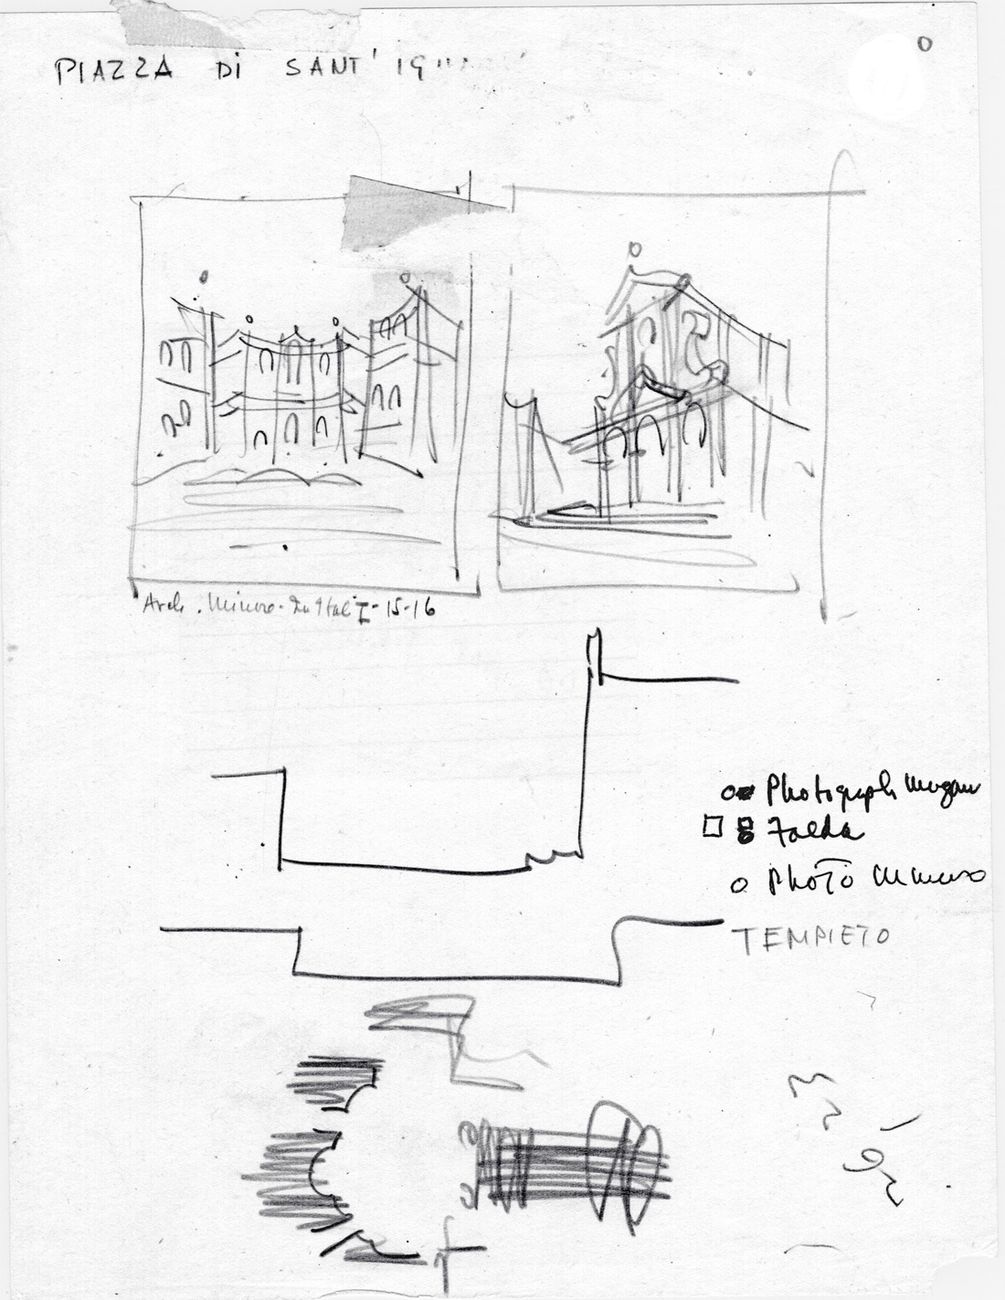 PIAZZA DI SANT' IGN
Arch. Minore. In Ital I - 15-16
Photograph
Falda
PHOTO Minore
TEMPIETO